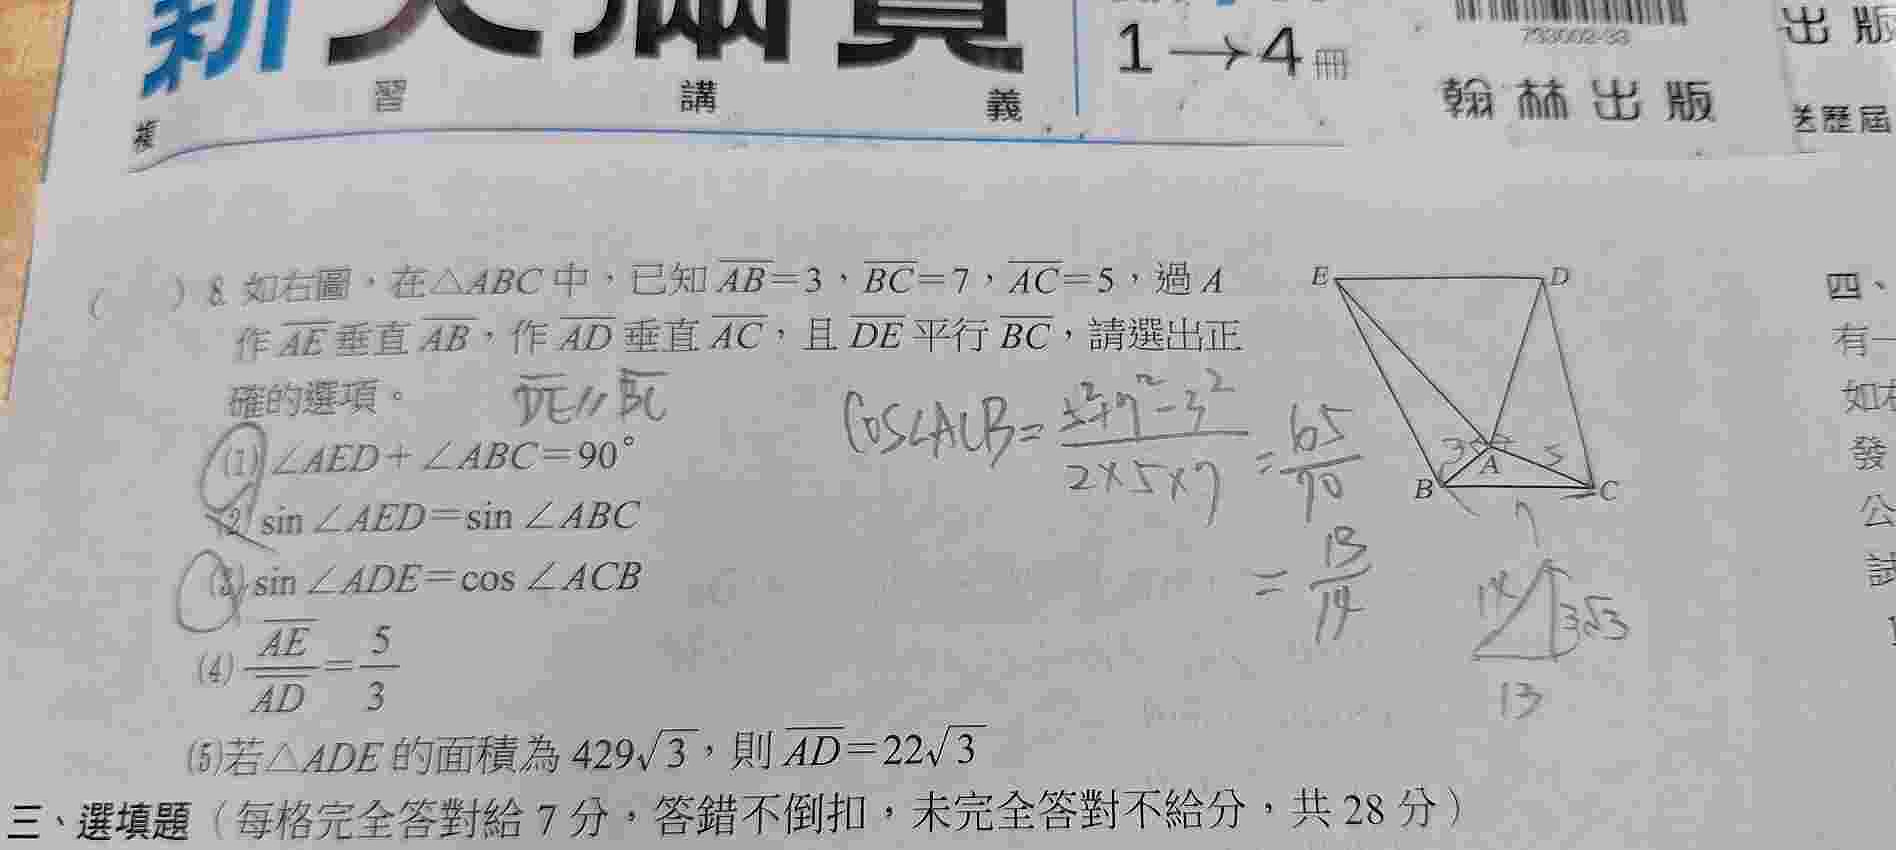 新大滿貫
1→4冊
複習講義
733002-33
翰林出版
出版
送歷屆
( ) 8. 如右圖,在△ABC 中,已知 AB=3,BC=7,AC=5,過 A
作 AE 垂直 AB,作 AD 垂直 AC,且 DE 平行 BC,請選出正
確的選項。
DE // BC
(1) ∠AED+∠ABC=90°
(2) sin∠AED=sin∠ABC
(3) sin∠ADE=cos∠ACB
(4) AE/AD=5/3
(5)若△ADE 的面積為 429√3,則 AD=22√3
cos∠ACB= (5²+7²-3²)/(2×5×7) = 65/70
= 13/14
E D
3 A 5
B C
7
14 3√3
13
三、選填題(每格完全答對給 7 分,答錯不倒扣,未完全答對不給分,共 28 分)
四、
有一
如右
發
公
試